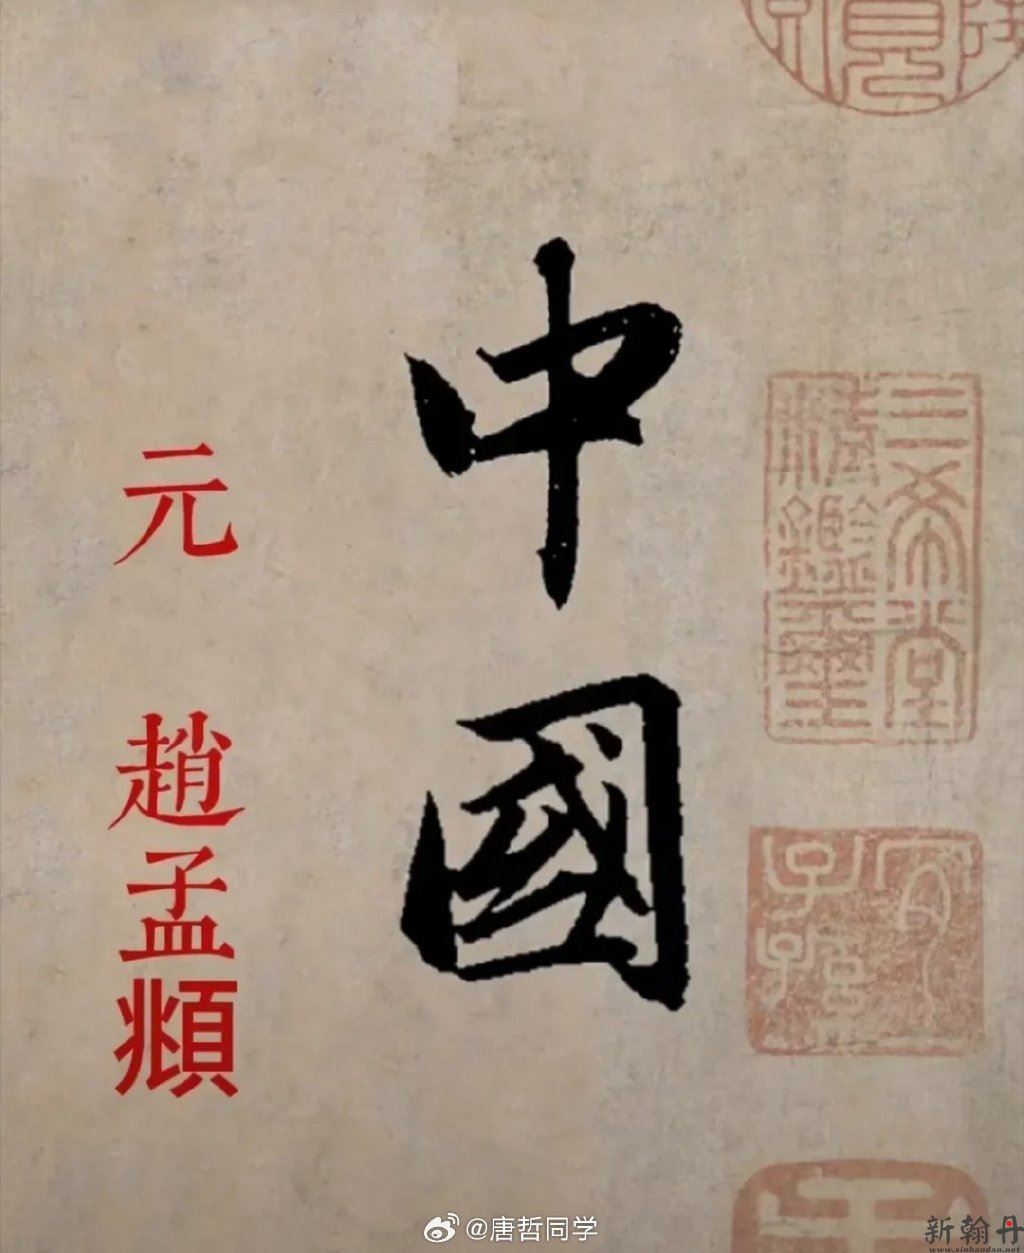 三希堂
精鑑璽
宜
子孫
中國
元 趙孟頫
@唐哲同学
新翰丹
www.xinhandan.net